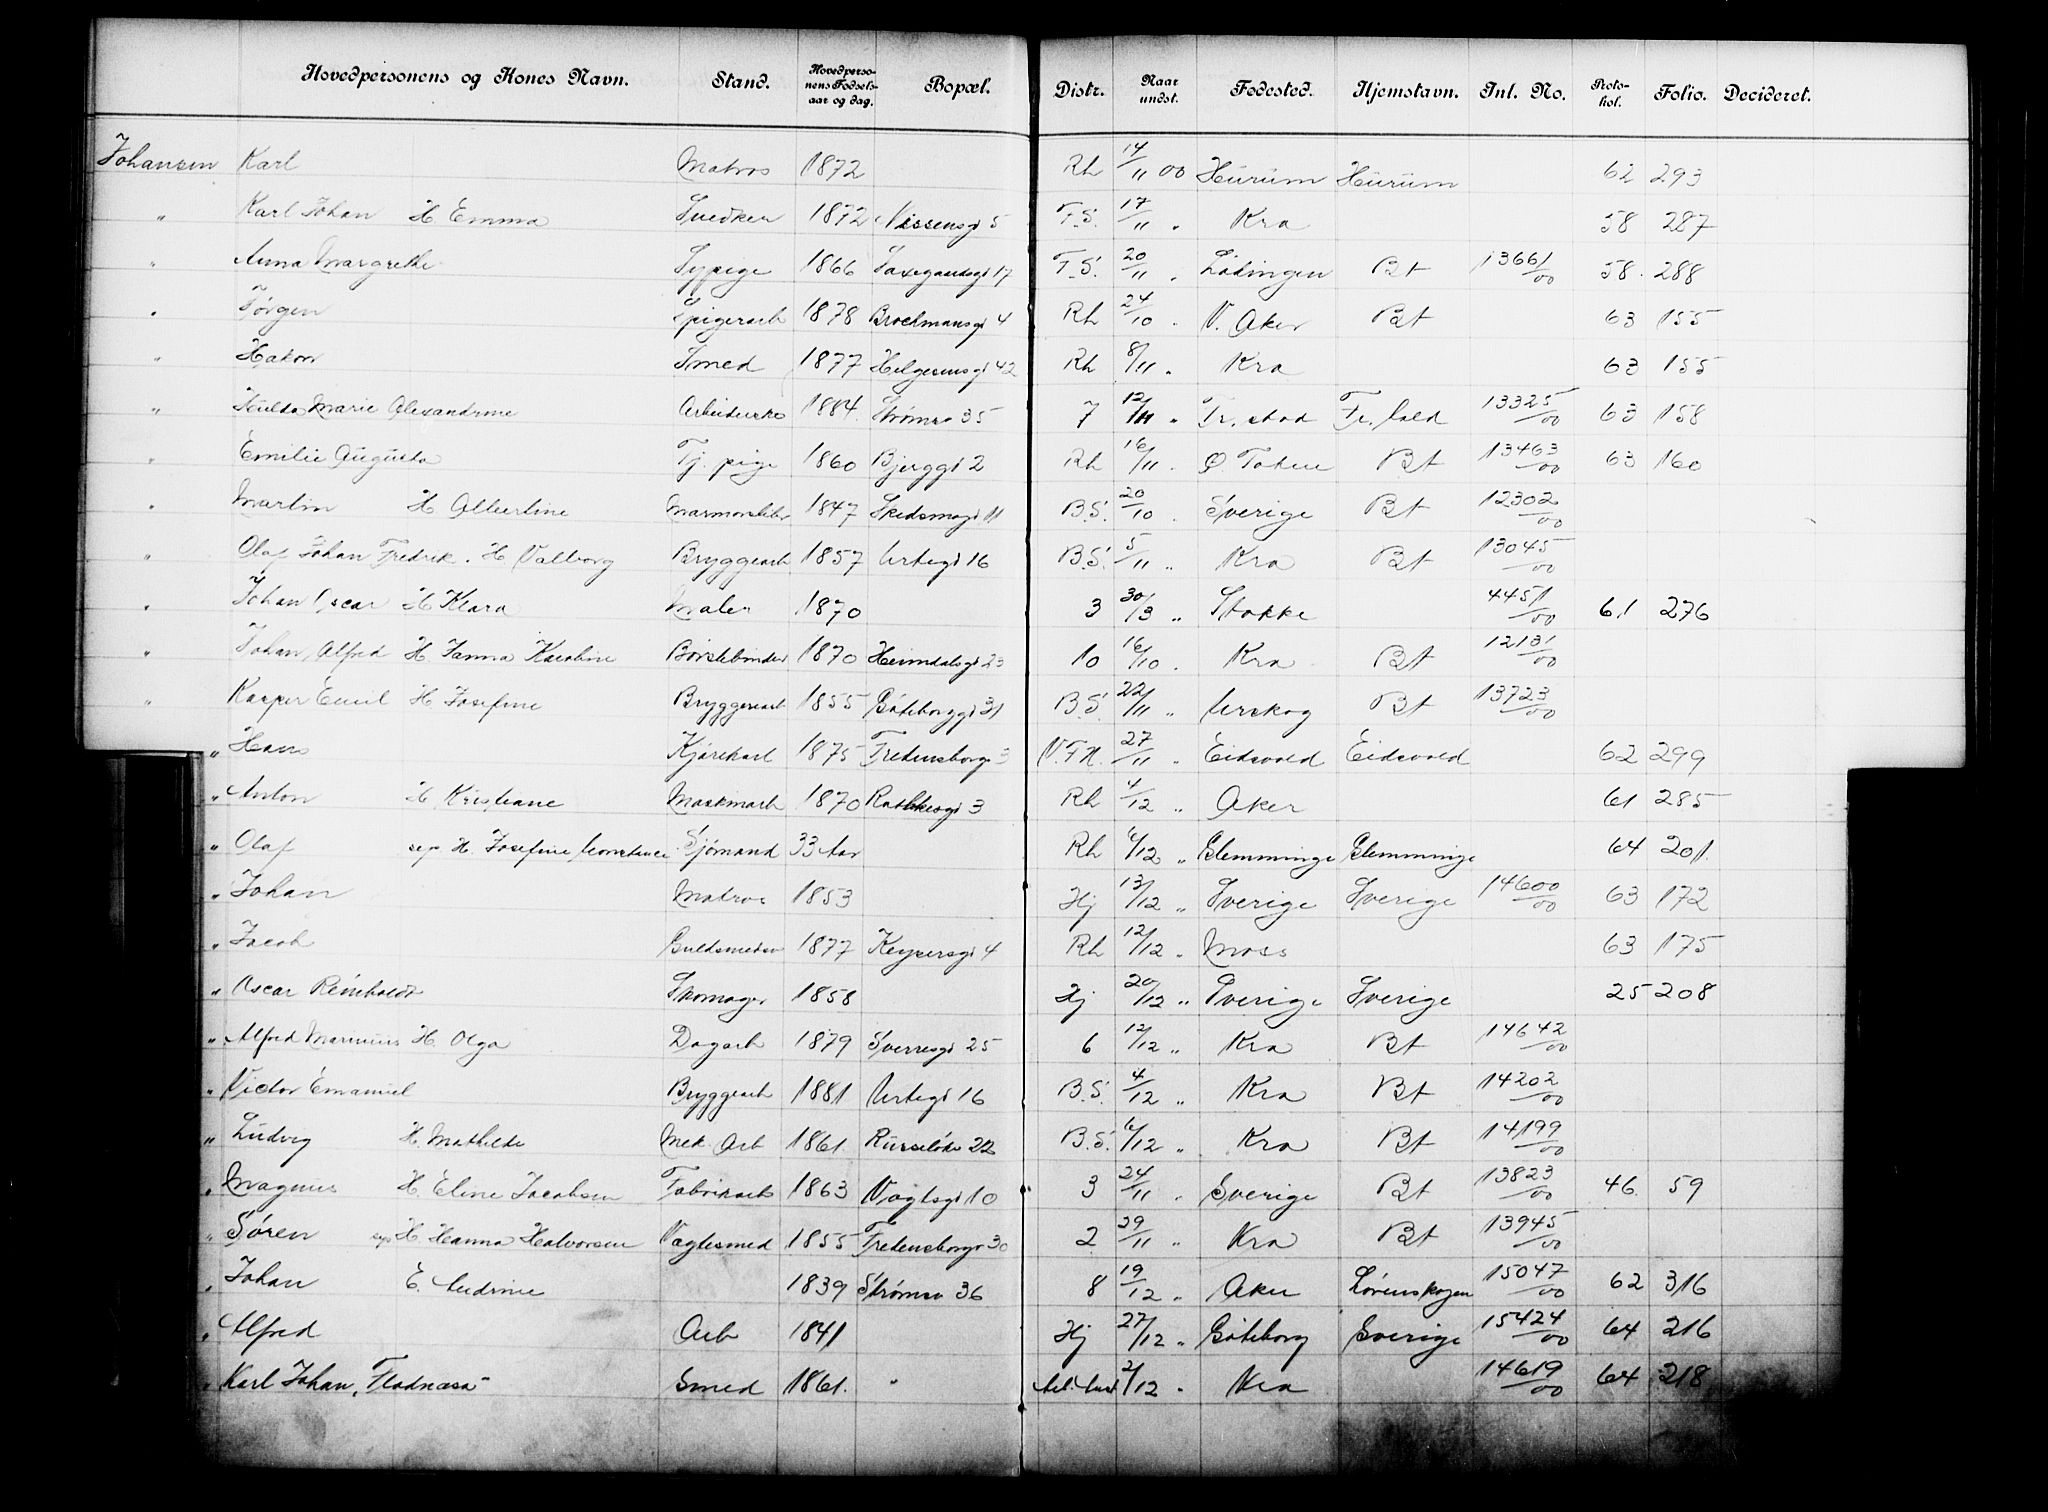 Hovedpersonens og Kones Navn. Stand. Hovedperso-nens Fødsels-aar og dag. Bopæl. Distr. Naar undst. Fødested. Hjemstavn. Inl. No. Proto-kol. Folio. Decideret.
Johansen Karl Matros 1872 Rh 14/11 00 Hurum Hurum 62 293
" Karl Johan H Emma Snedker 1872 Nissensgd 5 F.S. 17/11 " Kra 58 287
" Anna Margrethe Sypige 1866 Saxegaardsgd 17 F.S. 20/11 " Lödingen Bt 13661/00 58 288
" Jørgen Spigerarb 1878 Brochmansgd 4 Rh 24/10 " V. Aker Bt 63 155
" Hakon Smed 1877 Helgesensgd 42 Rh 8/11 " Kra 63 155
" Hulda Marie Alexandrine Arbeiderske 1884 Strømsv 35 7 12/11 " Fr.stad Fr.hald 13325/00 63 158
" Emilie Augusta Tj. pige 1860 Bjerggd 2 Rh 16/11 " Ø. Toten Bt 13463/00 63 160
" Martin H Albertine Marmorsliber 1847 Skedsmogd 11 B.S. 20/10 " Sverige Bt 12302/00
" Olaf Johan Fredrik. H Valborg Bryggearb 1857 Urtegd 16 B.S. 5/11 " Kra Bt 13045/00
" Johan Oscar H Klara Maler 1870 3 30/3 " Stokke 4451/00 61 276
" Johan Alfred H Janna Karoline Börstebinder 1870 Heimdalsgd 23 10 16/10 " Kra Bt 12131/00
" Kasper Emil H Josefine Bryggerarb 1855 Göteborggd 31 B.S. 22/11 " Urskog Bt 13723/00
" Hans Kjørekarl 1875 Fredensborgv 3 V.F.N. 27/11 " Eidsvold Eidsvold 62 299
" Anton H Kristiane Maskinarb 1870 Rathkesgd 3 Rh 4/12 " Aker 61 285
" Olaf sep H. Josefine Constance Sjømand 33 Aar Rh 6/12 " Glemminge Glemminge 64 201
" Johan Matros 1853 Hj 13/12 " Sverige Sverige 14600/00 63 172
" Jacob Guldsmedsv 1877 Keysersgd 4 Rh 12/12 " Moss 63 175
" Oscar Reinholdt Skomager 1858 Hj 20/12 " Sverige Sverige 25 208
" Alfred Marinius H. Olga Dagarb 1879 Sverresgd 25 6 12/12 " Kra Bt 14642/00
" Victor Emanuel Bryggearb 1881 Urtegd 16 B.S. 4/12 " Kra Bt 14202/00
" Ludvig H. Mathilde Mek. Arb 1861. Ruseløkv 22 B.S. 6/12 " Kra Bt 14199/00
" Magnus H. Eline Jacobsen Fabrikarb 1863 Vogtsgd 10 3 24/11 " Sverige Bt 13823/00 46 59
" Søren sep H. Hanna Halvorsen Vogtesmed 1855 Fredensborgv 30 2 29/11 " Kra Bt 13945/00
" Johan E. Andrine 1839 Strømsv 36 8 19/12 " Aker Lørenskogen 15047/00 62 316
" Alfred Arb 1841 Hj 27/12 " Göteborg Sverige 15424/00 64 216
" Karl Johan, Fladnæsa Smed 1861. " 2/12 " Kra 14619/00 64 218